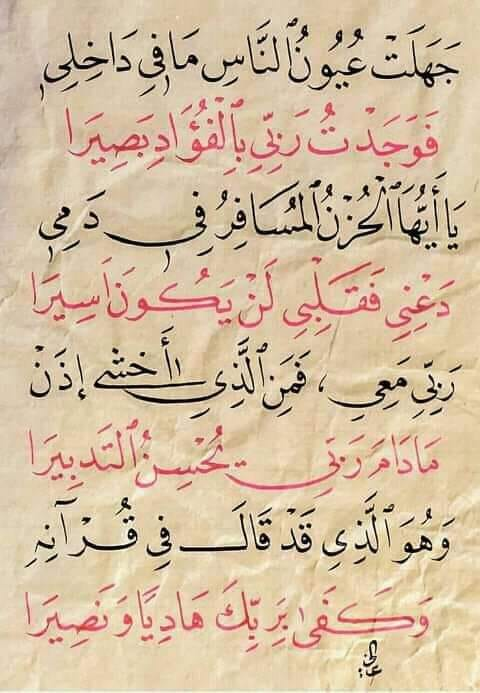 جَهِلَتْ عُيُونُ ٱلنَّاسِ مَا فِي دَاخِلِي
فَوَجَدْتُ رَبِّي بِٱلْفُؤَادِ بَصِيرَا
يَا أَيُّهَا ٱلْحُزْنُ ٱلْمُسَافِرُ فِي دَمِي
دَعْنِي فَقَلْبِي لَنْ يَكُونَ أَسِيرَا
رَبِّي مَعِي ، فَمَنِ ٱلَّذِي أَخْشَى إِذَنْ
مَادَامَ رَبِّي يُحْسِنُ ٱلتَّدْبِيرَا
وَهُوَ ٱلَّذِي قَدْ قَالَ فِي قُرْآنِهِ
وَكَفَىٰ بِرَبِّكَ هَادِيًا وَنَصِيرَا